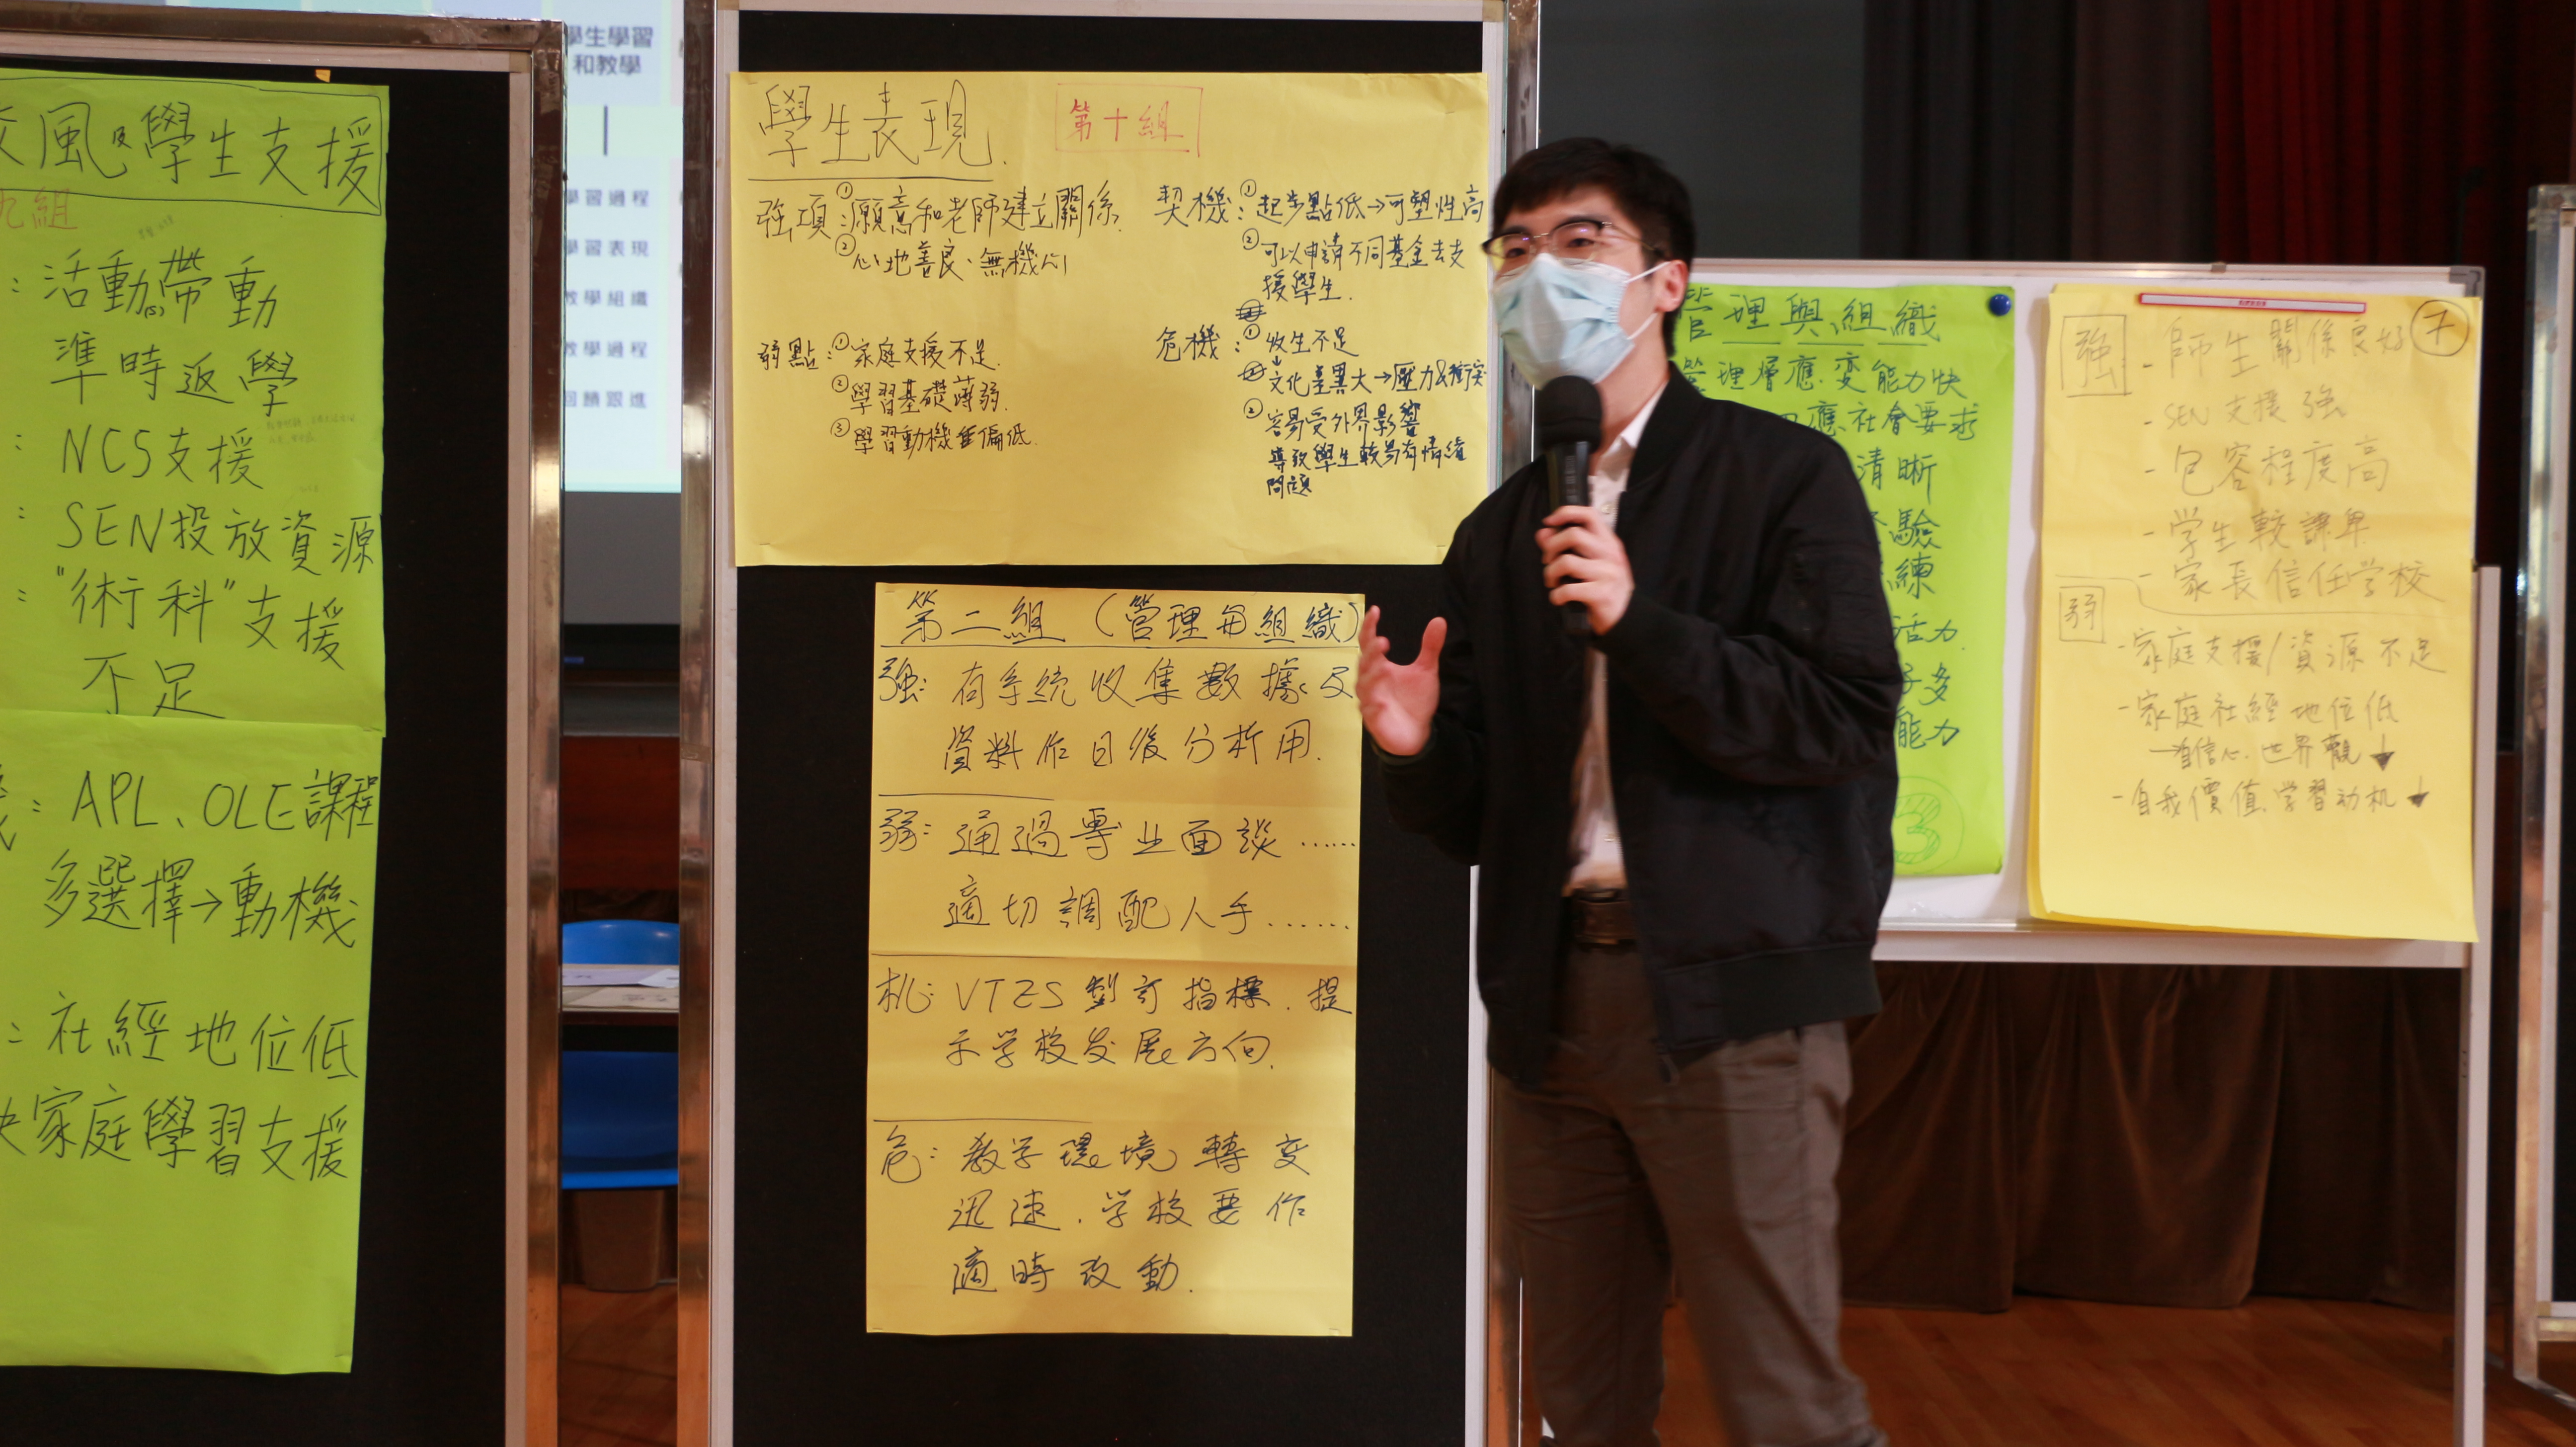 風及學生支援
九組
：活動帶動
準時返學
：NCS支援
：SEN投放資源
："術科"支援
不足
：APL、OLE課程
多選擇→動機
：社經地位低
家庭學習支援
學生學習
和教學
學習過程
學習表現
教學組織
教學過程
回饋跟進
學生表現.
第十組
強項：①願意和老師建立關係.
②心地善良、無機心
弱點：①家庭支援不足.
②學習基礎薄弱.
③學習動機偏低.
契機：①起步點低→可塑性高
②可以申請不同基金去支
援學生.
危機：①收生不足
↓
文化差異大→壓力&衝突
②容易受外界影響
導致學生較易有情緒
問題
第二組（管理與組織）
強：有系統收集數據及
資料作日後分析用.
弱：通過專业面談……
適切調配人手……
机：VTES 製訂指標.提
示学校发展方向.
危：教学環境轉变
迅速.学校要作
適時改動.
管理與組織
管理層應变能力快
應社會要求
清晰
驗
練
活力.
多
能力
3
7
強
- 師生關係良好
- SEN 支援強
- 包容程度高
- 学生較謙卑
- 家長信任学校
弱
- 家庭支援/資源不足
- 家庭社經地位低
→自信心.世界觀↓
- 自我價值.学習动机↓